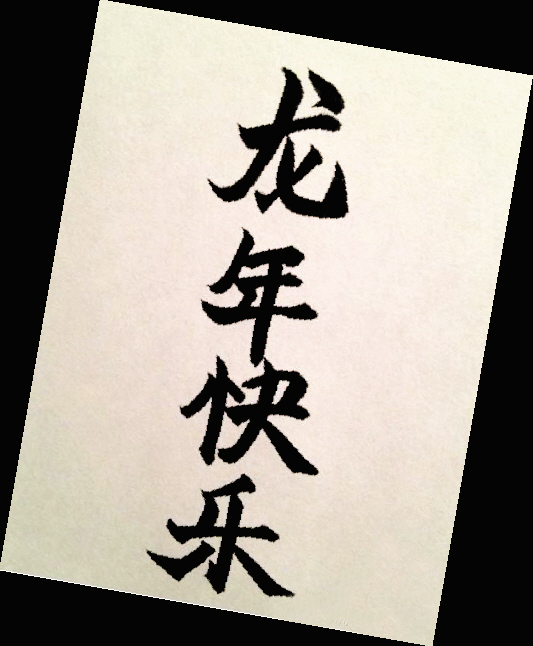 龙年快乐